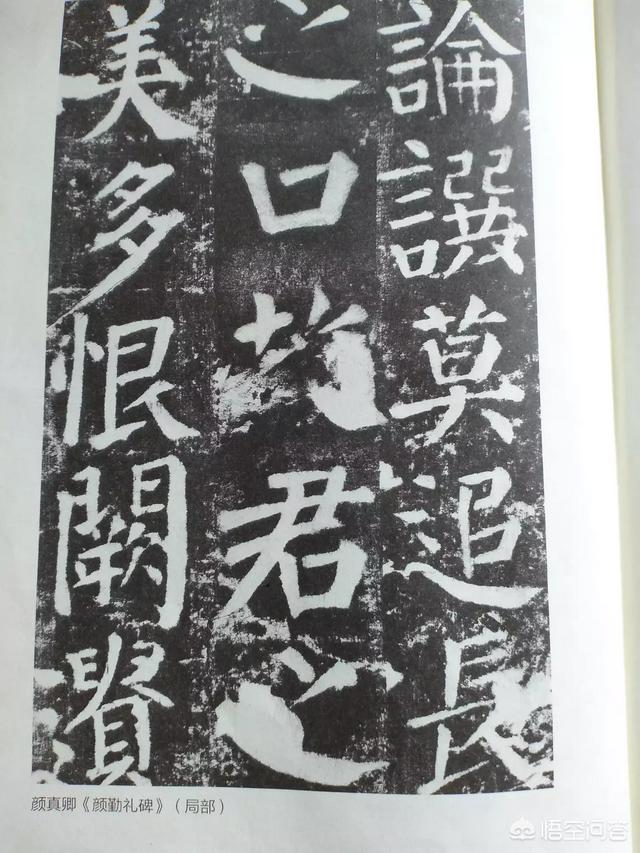 論譔莫追長
之口故君之
美多恨闕遺
颜真卿《颜勤礼碑》(局部)
悟空问答